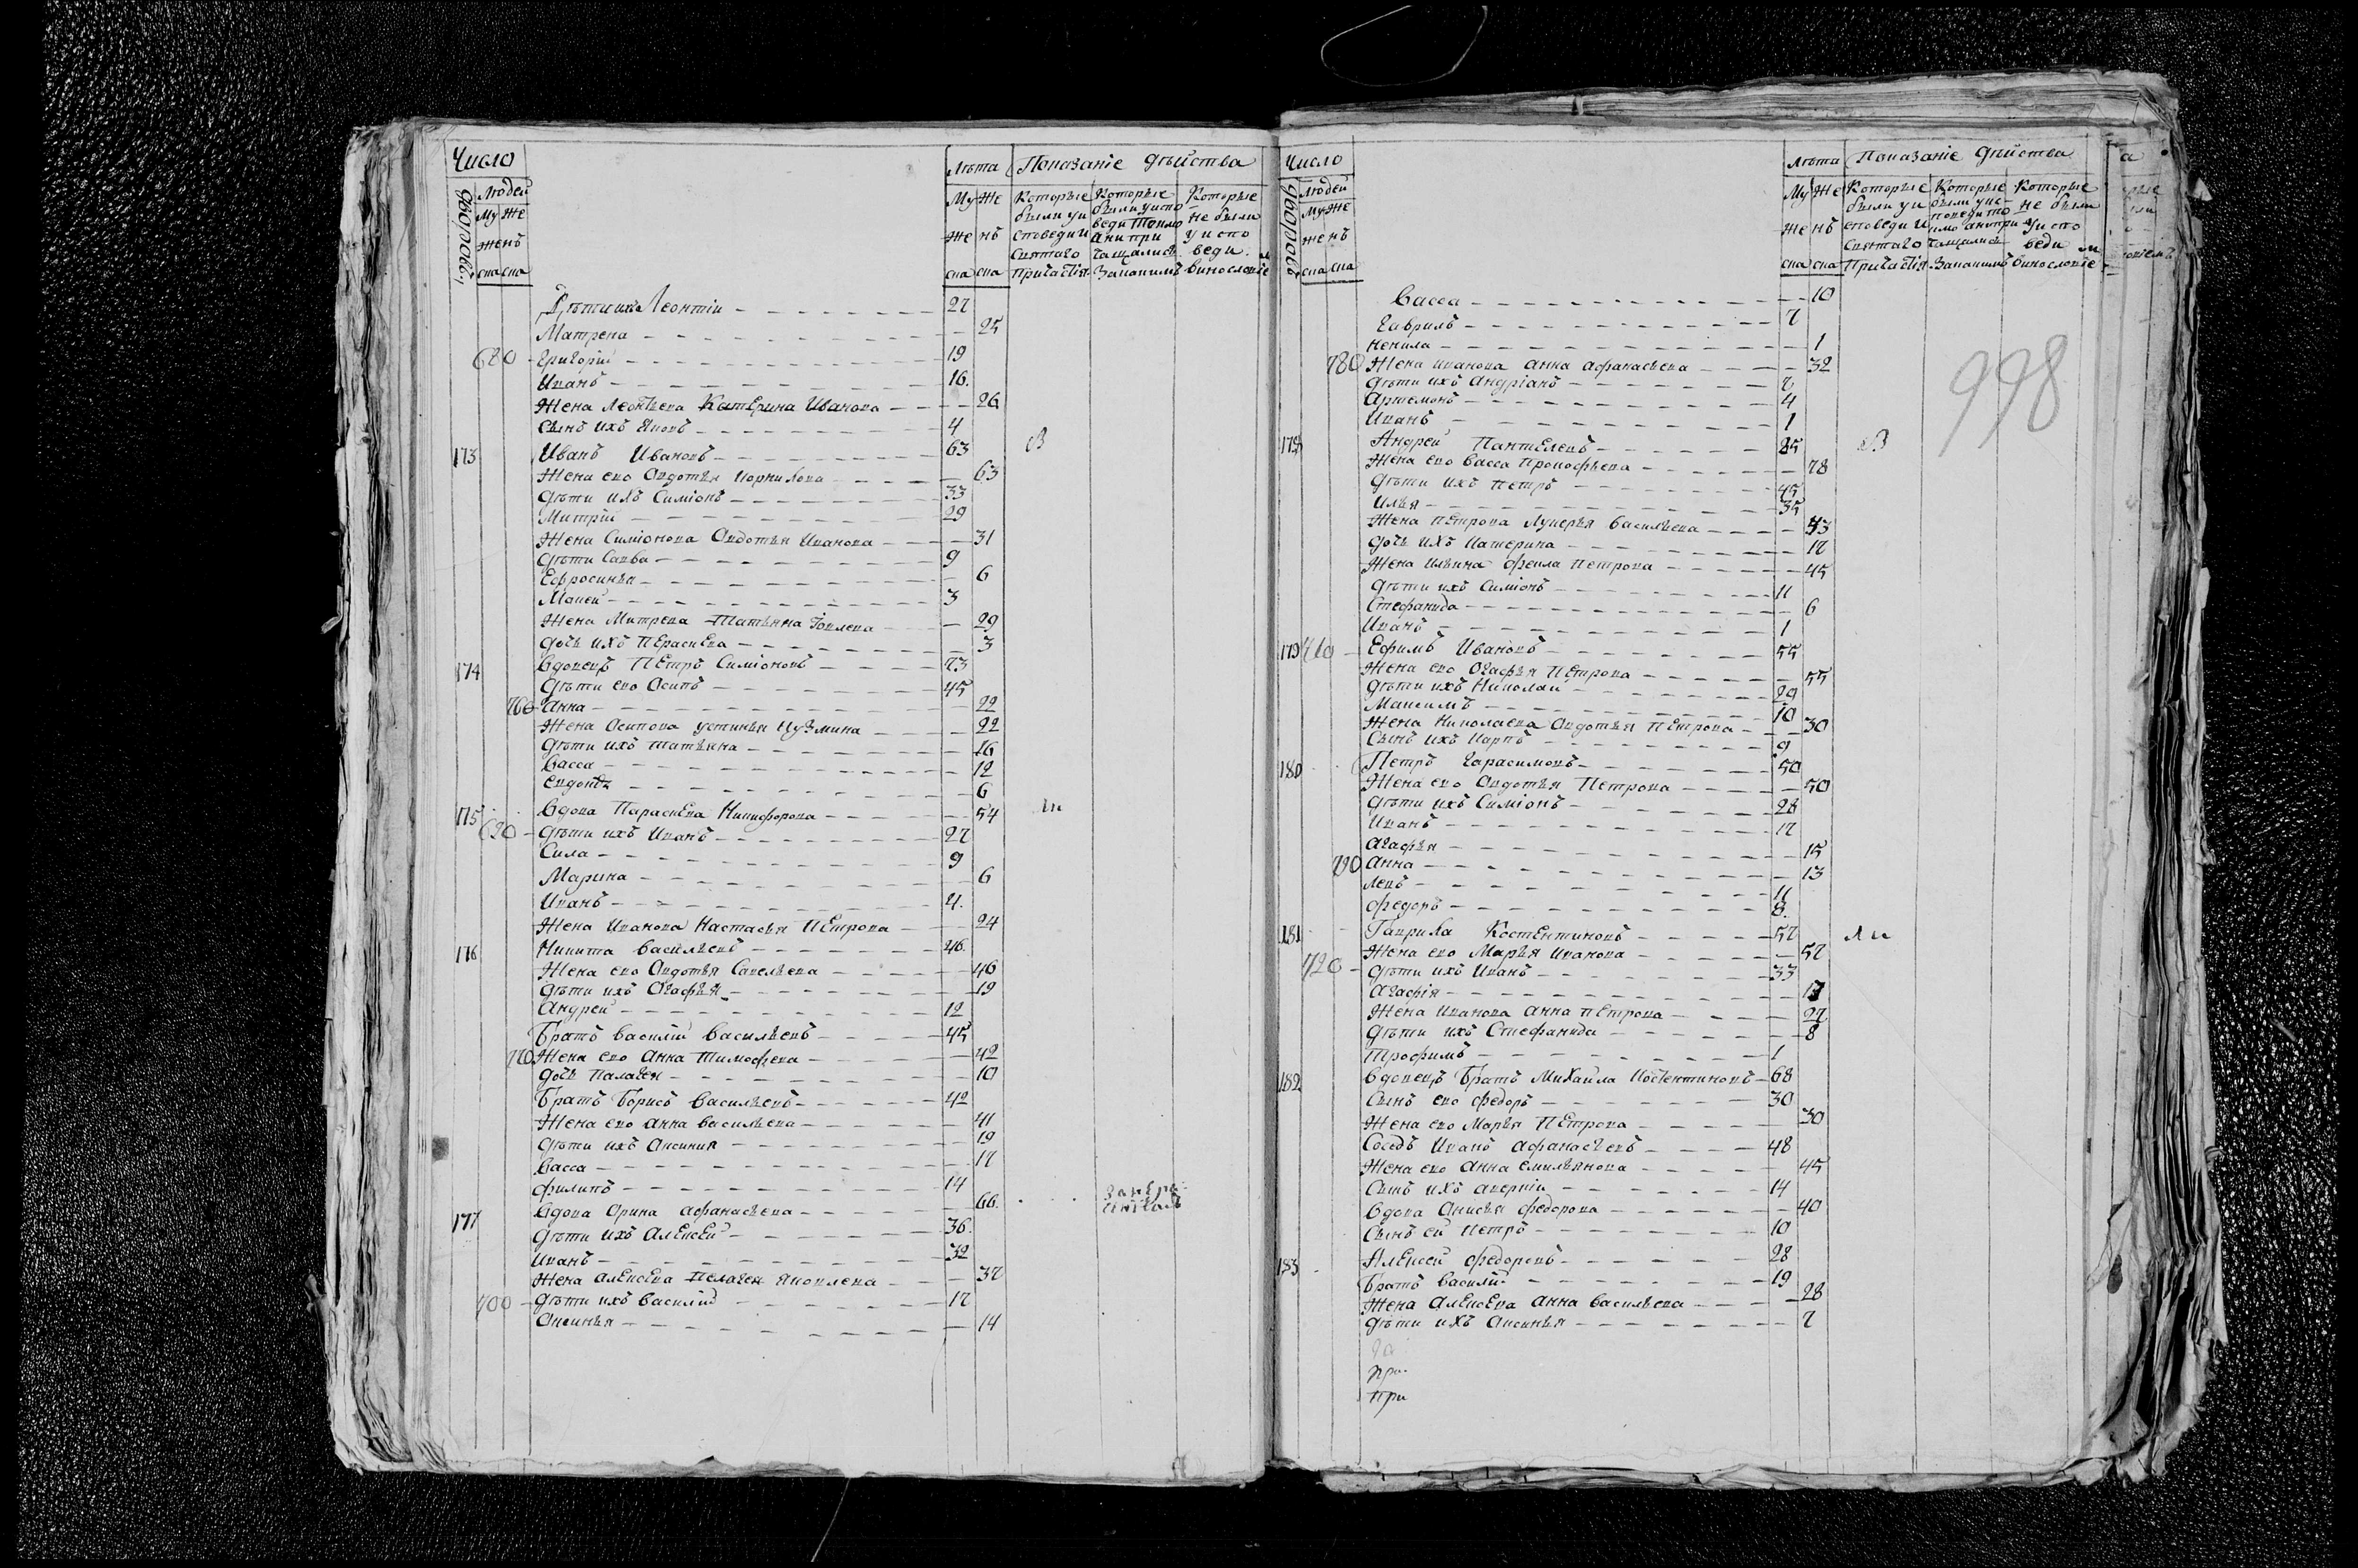 Число
Лѣта Показаніе дѣйства
дворовъ
Людей
Му Же
женъ
ска ска
Му Же
же нъ
ска ска
Которые
были у и
споведи и
святаго
причастія
Которые
были у испо
веди токмо
а не при
чащались
за какимъ
Которые
не были
у испо
веди
винословіе
Дѣти ихъ Леонтіи 27
Матрена 25
680 Григоріи 19
Иванъ 16.
Жена Леонтьева Катерина Иванова 26
Сынъ ихъ Яковъ 4
173 Иванъ Ивановъ 63 В
Жена ево Овдотья Корнилова 63
Дѣти ихъ Симіонъ 33
Митріи 29
Жена Симіонова Овдотья Иванова 31
Дѣти Савва 9
Ефросинья 6
Мокеи 3
Жена Митрева Татьяна Іовлева 29
Дочь ихъ Пераскева 3
174 Вдовецъ Петръ Симіоновъ 73
Дѣти ево Осипъ 45
760 Анна 22
Жена Осипова Устинья Кузмина 22
Дѣти ихъ Татьяна 16
Васса 12
6
175 Вдова Параскева Никифорова 54
690 Дѣти ихъ Иванъ 27
Сила 9
Марина 6
Иванъ 4.
Жена Иванова Настасья Петрова 24
176 Никита Васильевъ 46.
Жена ево Овдотья Савельева 46
Дѣти ихъ Огафья 19
Андреи 12
Братъ Василіи Васильевъ 45
770 Жена ево Анна Тимофеева 42
Дочь Палагея 10
Братъ Борисъ Васильевъ 42
Жена ево Анна Васильева 41
Дѣти ихъ Аксиния 19
Васса 17
Филипъ 14
177 Вдова Орина Афанасьева 66.
Дѣти ихъ Алексеи 36.
Иванъ 32
Жена Алексева Пелагея Яковлева 37
700 Дѣти ихъ Василіи 17
Оксинья 14
Число
Лѣта Показаніе дѣйства
дворовъ
Людей
Му Же
женъ
ска ска
Му Же
же нъ
ска ска
Которые
были у и
споведи и
святаго
причастія
Которые
были у ис
поведи то
кмо а не при
чащались
за какимъ
Которые
не были
у испо
веди
винословіе
998
Васса 10
Гаврилъ 7
Ненила 1
780 Жена Иванова Анна Афанасьева 32
Дѣти ихъ Андріанъ 7
Артемонъ 4
Иванъ 1
178 Андреи Пантелеевъ 85 В
Жена ево Васса Прокофьева 78
Дѣти ихъ Петръ 45
Илья 35
Жена Петрова Лукерья Васильева 43
Дочь ихъ Катерина 17
Жена Ильина Фекла Петрова 45
Дѣти ихъ Симіонъ 11
Стефанида 6
Иванъ 1
179 710 Ефимъ Ивановъ 55
Жена ево Огафья Петрова 55
Дѣти ихъ Николаи 29
Максимъ 10
Жена Николаева Овдотья Петрова 30
Сынъ ихъ Карпъ 9
180 Петръ Гарасимовъ 50
Жена ево Овдотья Петрова 50
Дѣти ихъ Симіонъ 28
Иванъ 17
Агафья 15
790 Анна 13
Левъ 11
Федоръ 8.
181 Гаврила Костентиновъ 57
Жена ево Марья Иванова 57
720 Дѣти ихъ Иванъ 33
Агафія 17
Жена Иванова Анна Петрова 27
Дѣти ихъ Стефанида 8
Трофимъ 1
182 Вдовецъ Братъ Михаила Костентиновъ 68
Сынъ ево Федоръ 30
Жена ево Марья Петрова 30
Соседъ Иванъ Афанасьевъ 48
Жена ево Анна Емильянова 45
Сынъ ихъ Аверкіи 14
Вдова Анисья Федорова 40
Сынъ ей Петръ 10
183 Алексеи Федоровъ 28
Братъ Василіи 19
Жена Алексева Анна Васильева 28
Дѣти ихъ Аксинья 7
при
при